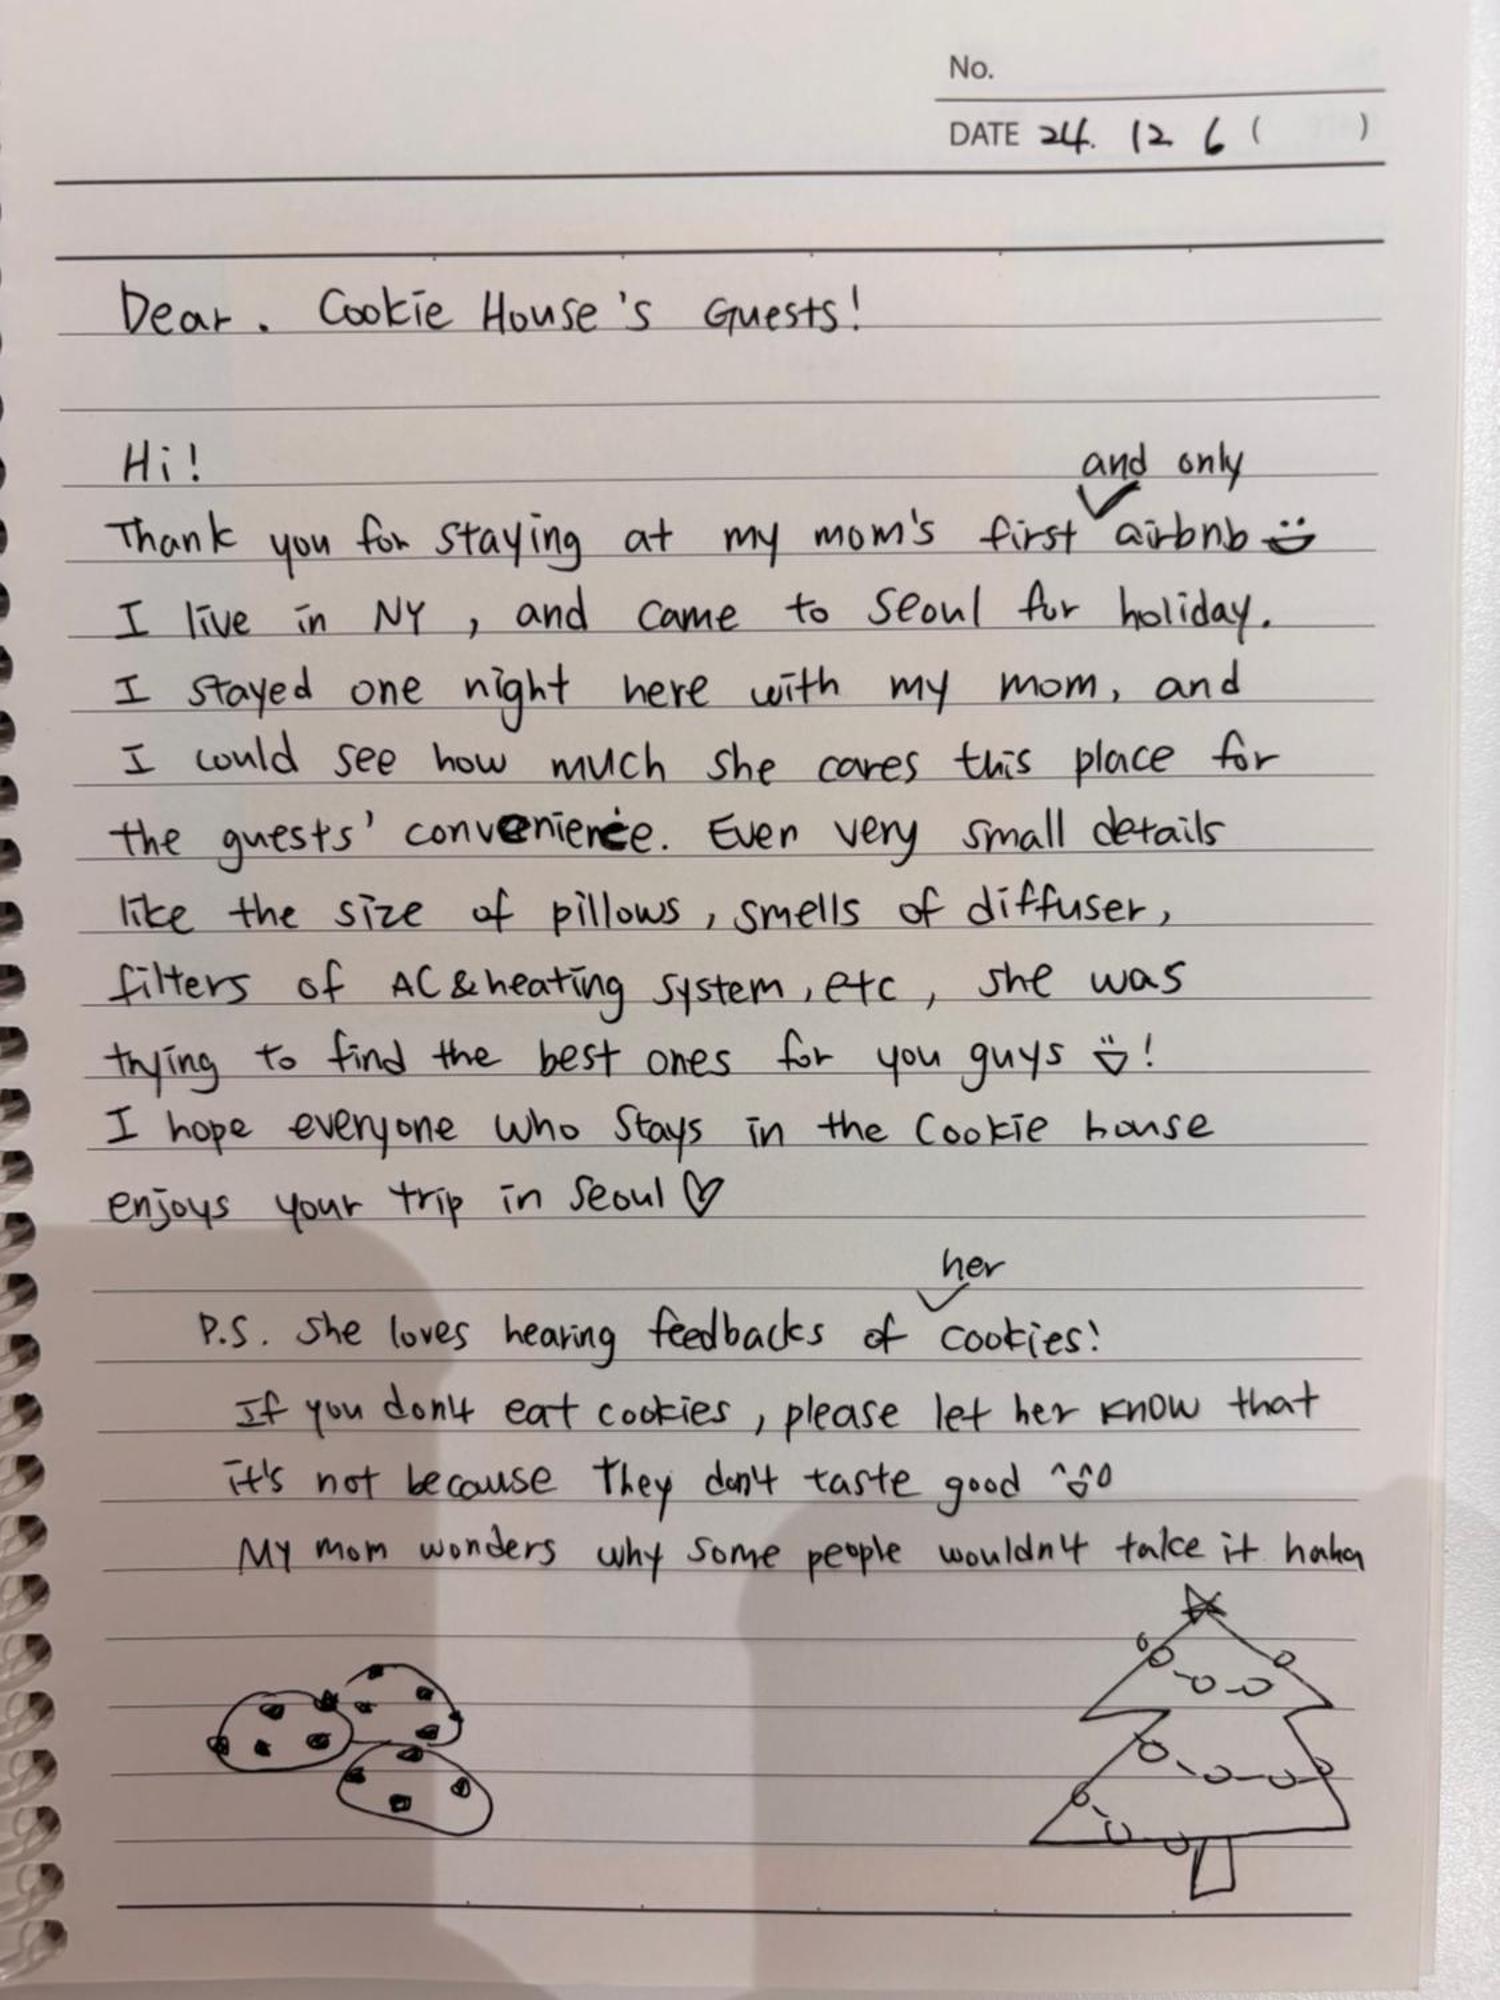 No.
DATE 24. 12 6 ( )
Dear. Cookie House's Guests!
Hi!
and only
Thank you for staying at my mom's first airbnb
I live in NY, and came to Seoul for holiday.
I stayed one night here with my mom, and
I could see how much she cares this place for
the guests' convenience. Even very small details
like the size of pillows, smells of diffuser,
filters of AC & heating system, etc, she was
trying to find the best ones for you guys !
I hope everyone who stays in the Cookie house
enjoys your trip in Seoul ♡
her
P.S. She loves hearing feedbacks of cookies!
If you don't eat cookies, please let her know that
it's not because they don't taste good
My mom wonders why some people wouldn't take it haha